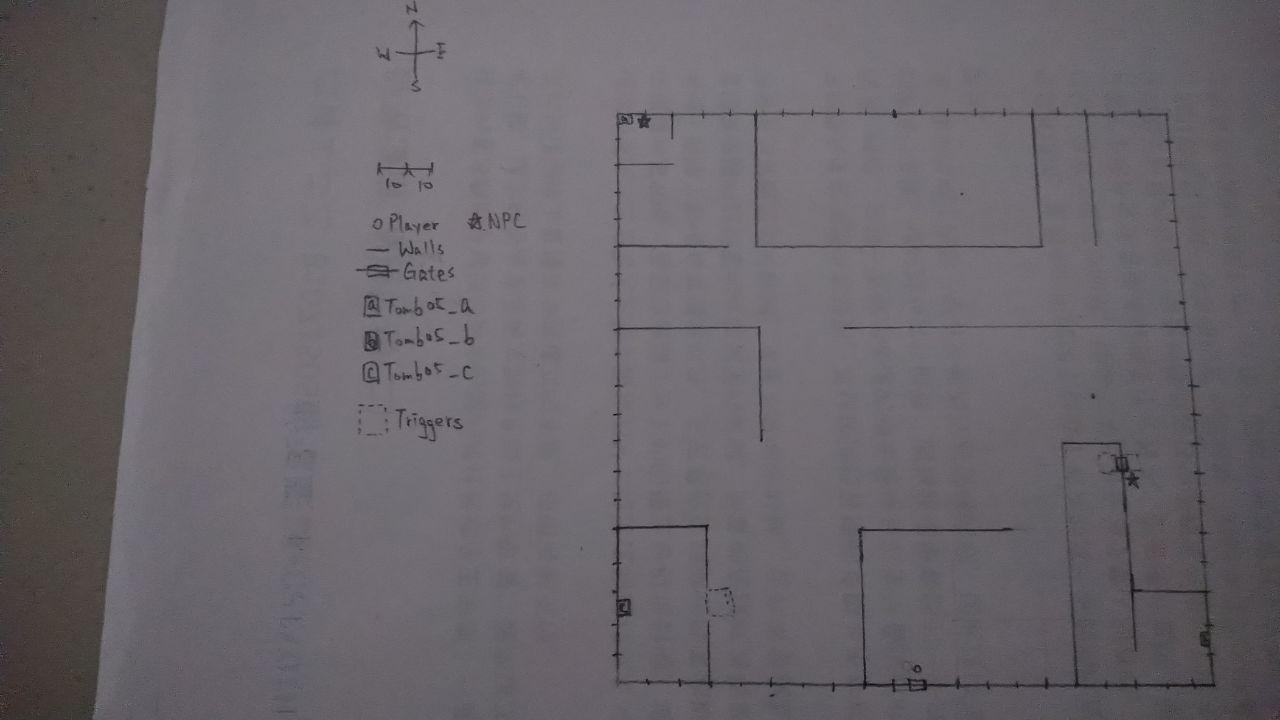 N
W E
S
10 10
Player NPC
Walls
Gates
a Tomb05_a
b Tomb05_b
c Tomb05_c
Triggers
a
c